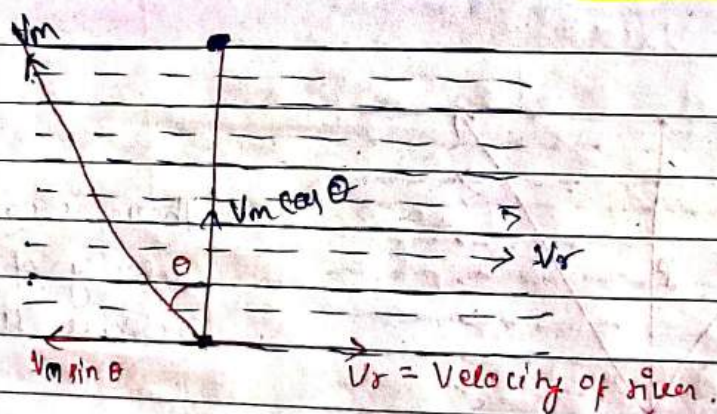 Vm
Vm cos θ
θ
Vr
Vm sin θ
Vr = Velocity of river.